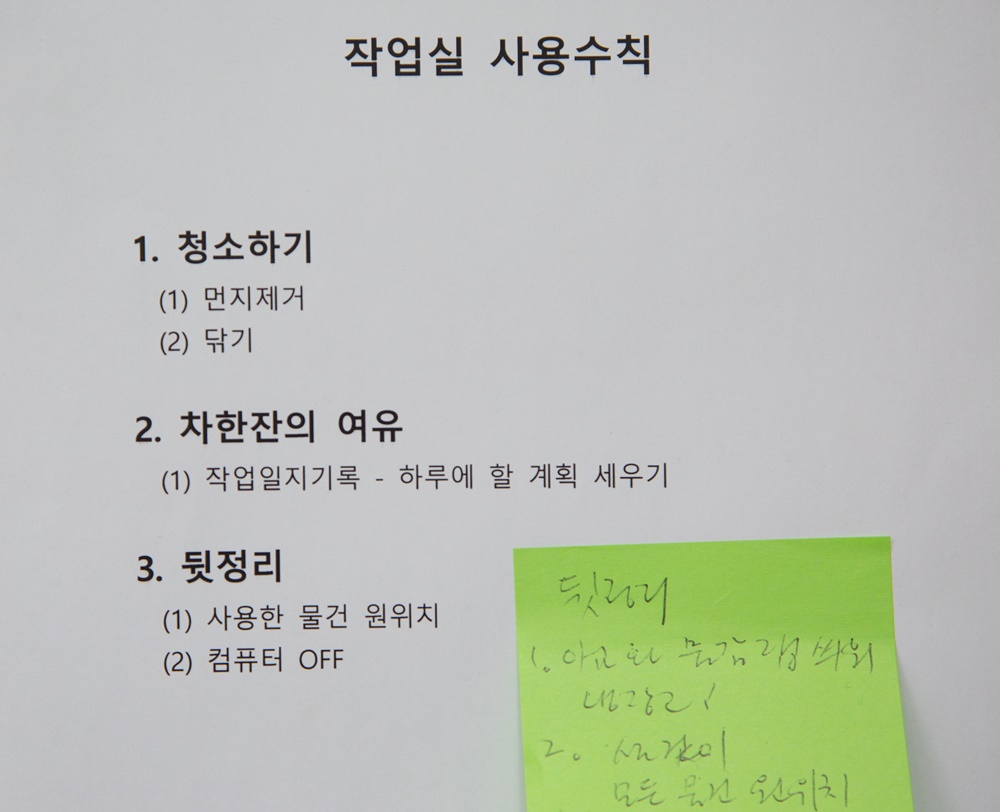 작업실 사용수칙
1. 청소하기
(1) 먼지제거
(2) 닦기
2. 차한잔의 여유
(1) 작업일지기록 - 하루에 할 계획 세우기
3. 뒷정리
(1) 사용한 물건 원위치
(2) 컴퓨터 OFF
뒷정리
1. 아교와 물감 랩 씌워
냉장고!
2.
모든 물건 원위치